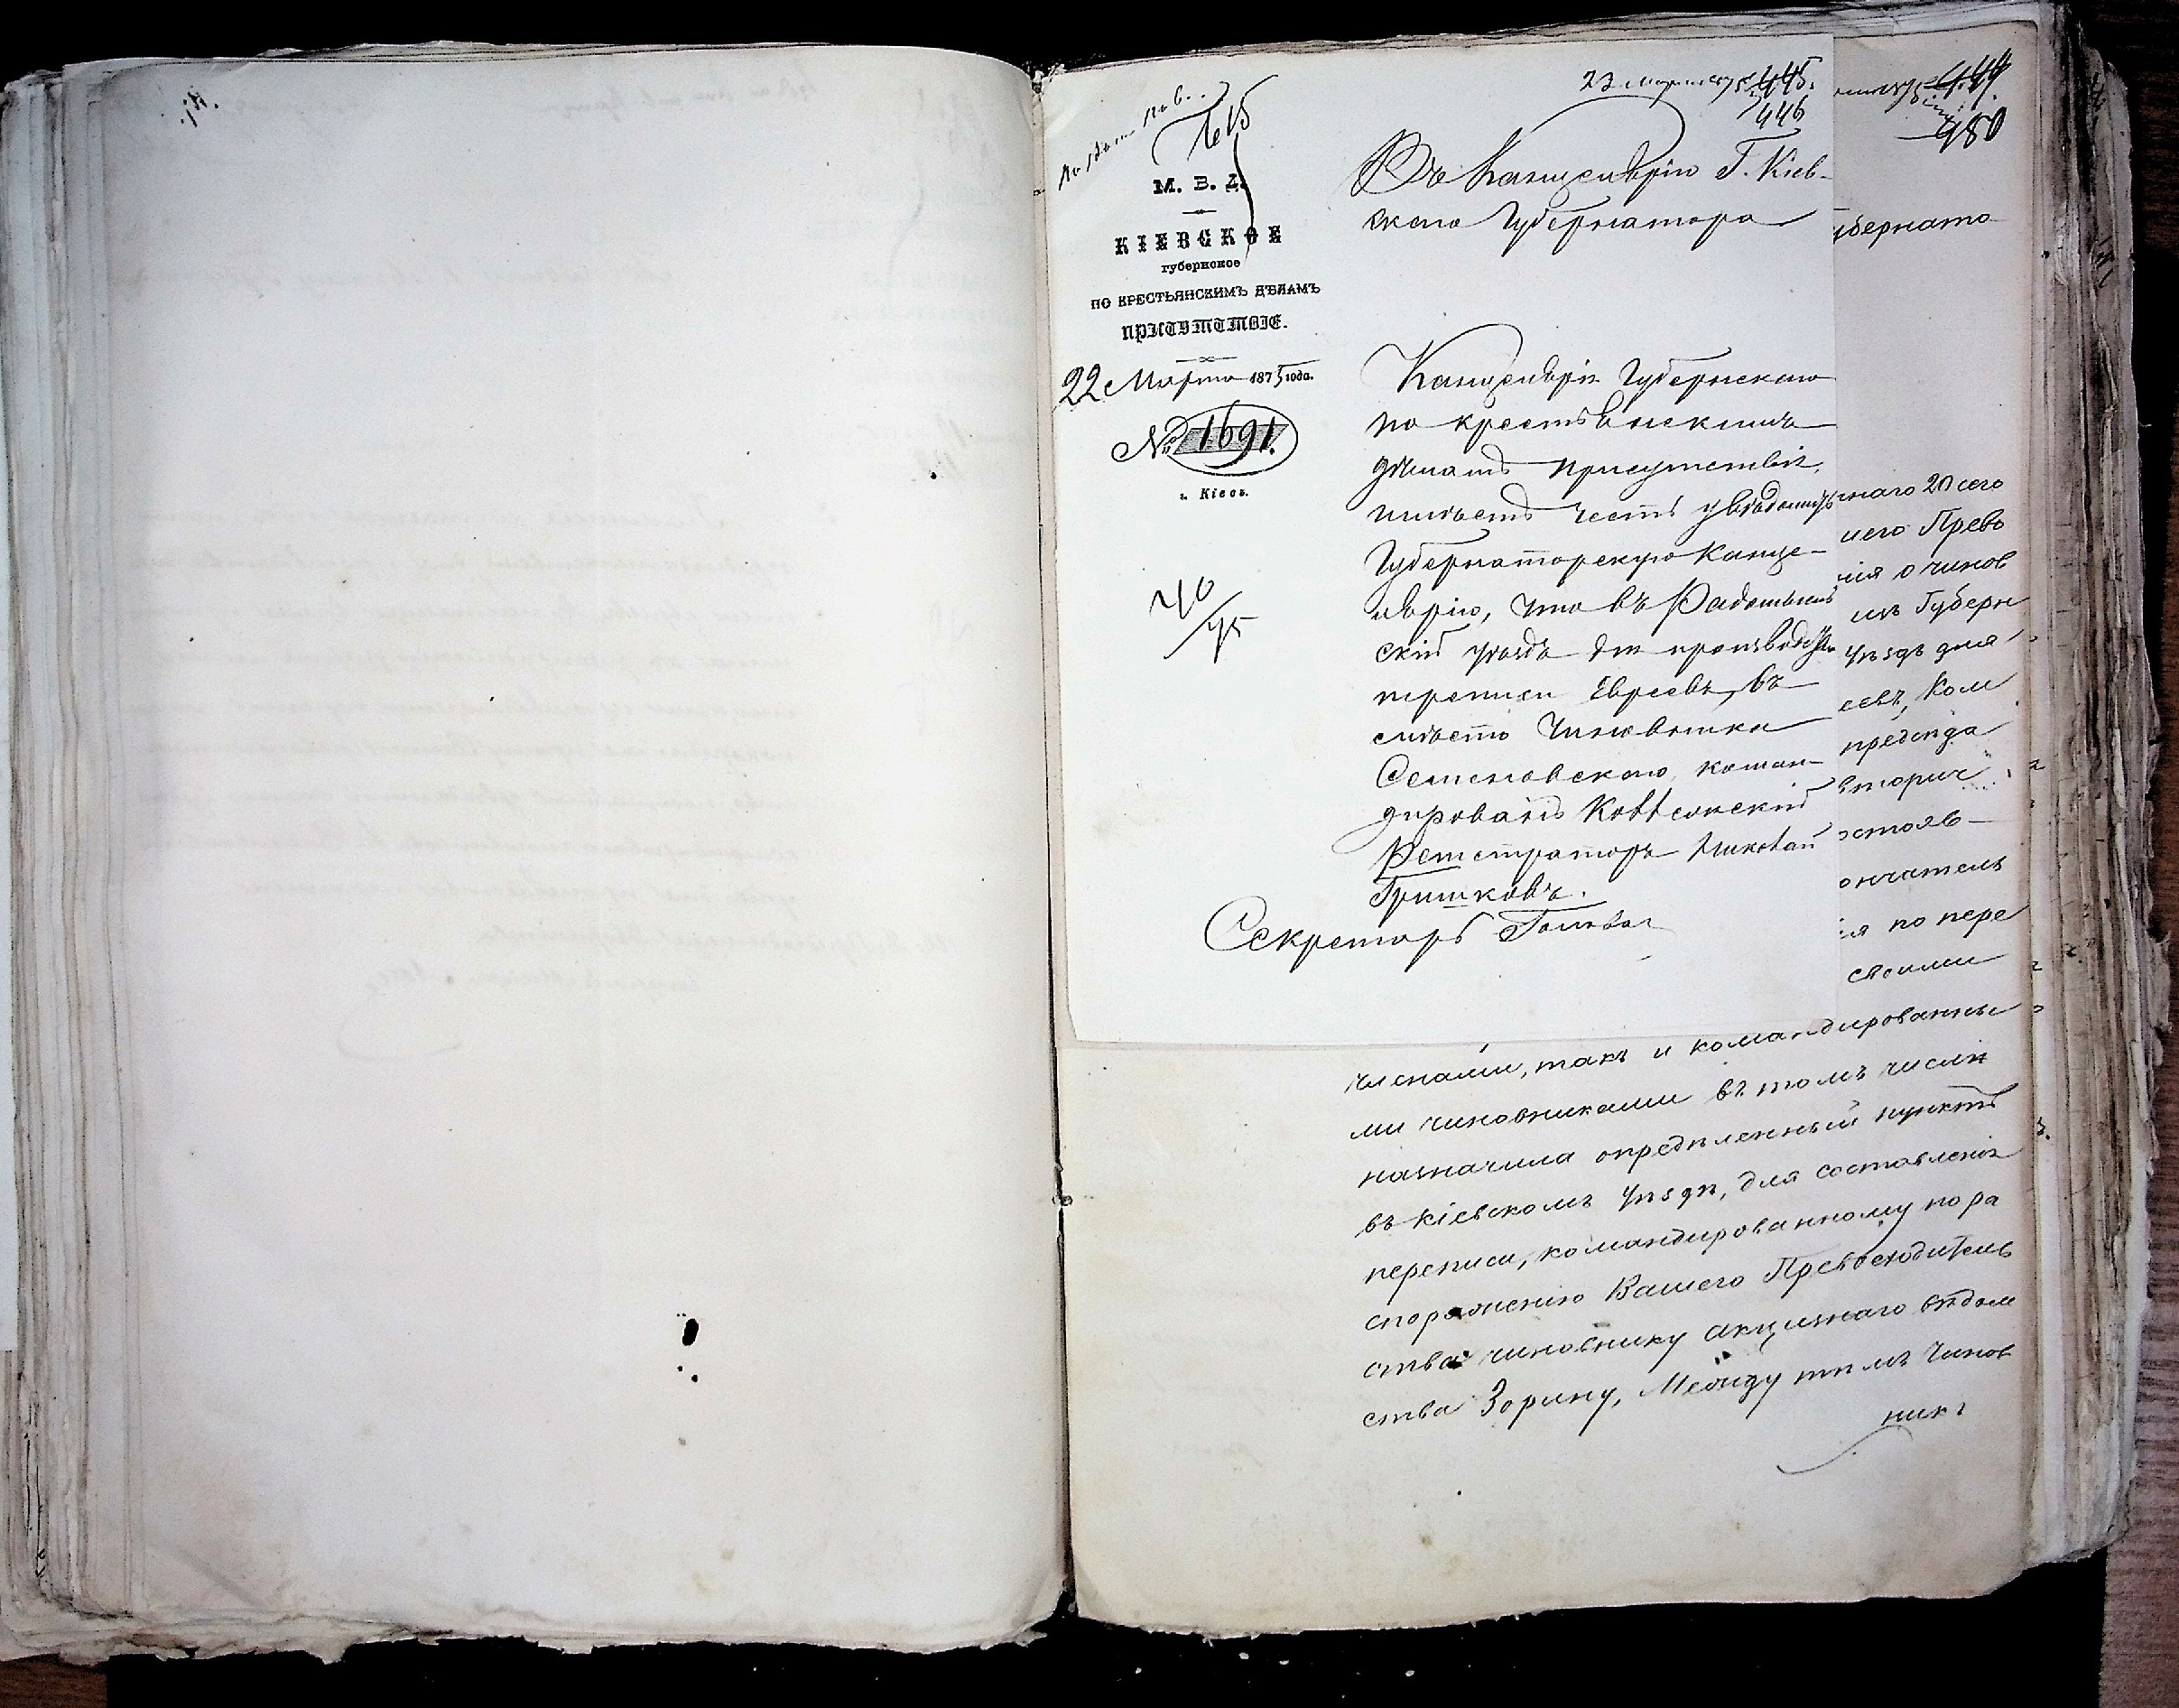 23 Марта 1875 445.
446
М. В. Д.
КІЕВСКОЕ
губернское
ПО КРЕСТЬЯНСКИМЪ ДѢЛАМЪ
ПРИСУТСТВІЕ.
22 Марта 1875 года.
№ 1691.
г. Кіевъ.
40/75
Въ Канцелярію Г. Кіев-
скаго Губернатора
Канцелярія Губернскаго
по крестьянскимъ
дѣламъ присутствія,
имѣетъ честь увѣдомить
Губернаторскую Канце-
лярію, что въ Радомысль
скій уѣздъ для производства
переписи Евреевъ, въ
смѣсто Чиновника
Семеновского, коман-
дированъ Коллежскій
Регистраторъ Николай
Гришковъ.
Секретарь
444
480
уберната
наго 20 сего
шего Прево
нія о чинов
имъ Губерн
уѣздъ для
еевъ, Ком
предсѣда
вторич
остояв-
ончатель
ія по пере
своими
членами, такъ и командированны
ми чиновниками въ томъ числѣ
назначила опредѣленный пунктъ
въ Кіевскомъ уѣздѣ, для составленія
переписи, командированному по ра
споряженію Вашего Превосходитель
ства чиновнику акцизнаго вѣдом
ства Зорину, Между тѣмъ Чинов
никъ